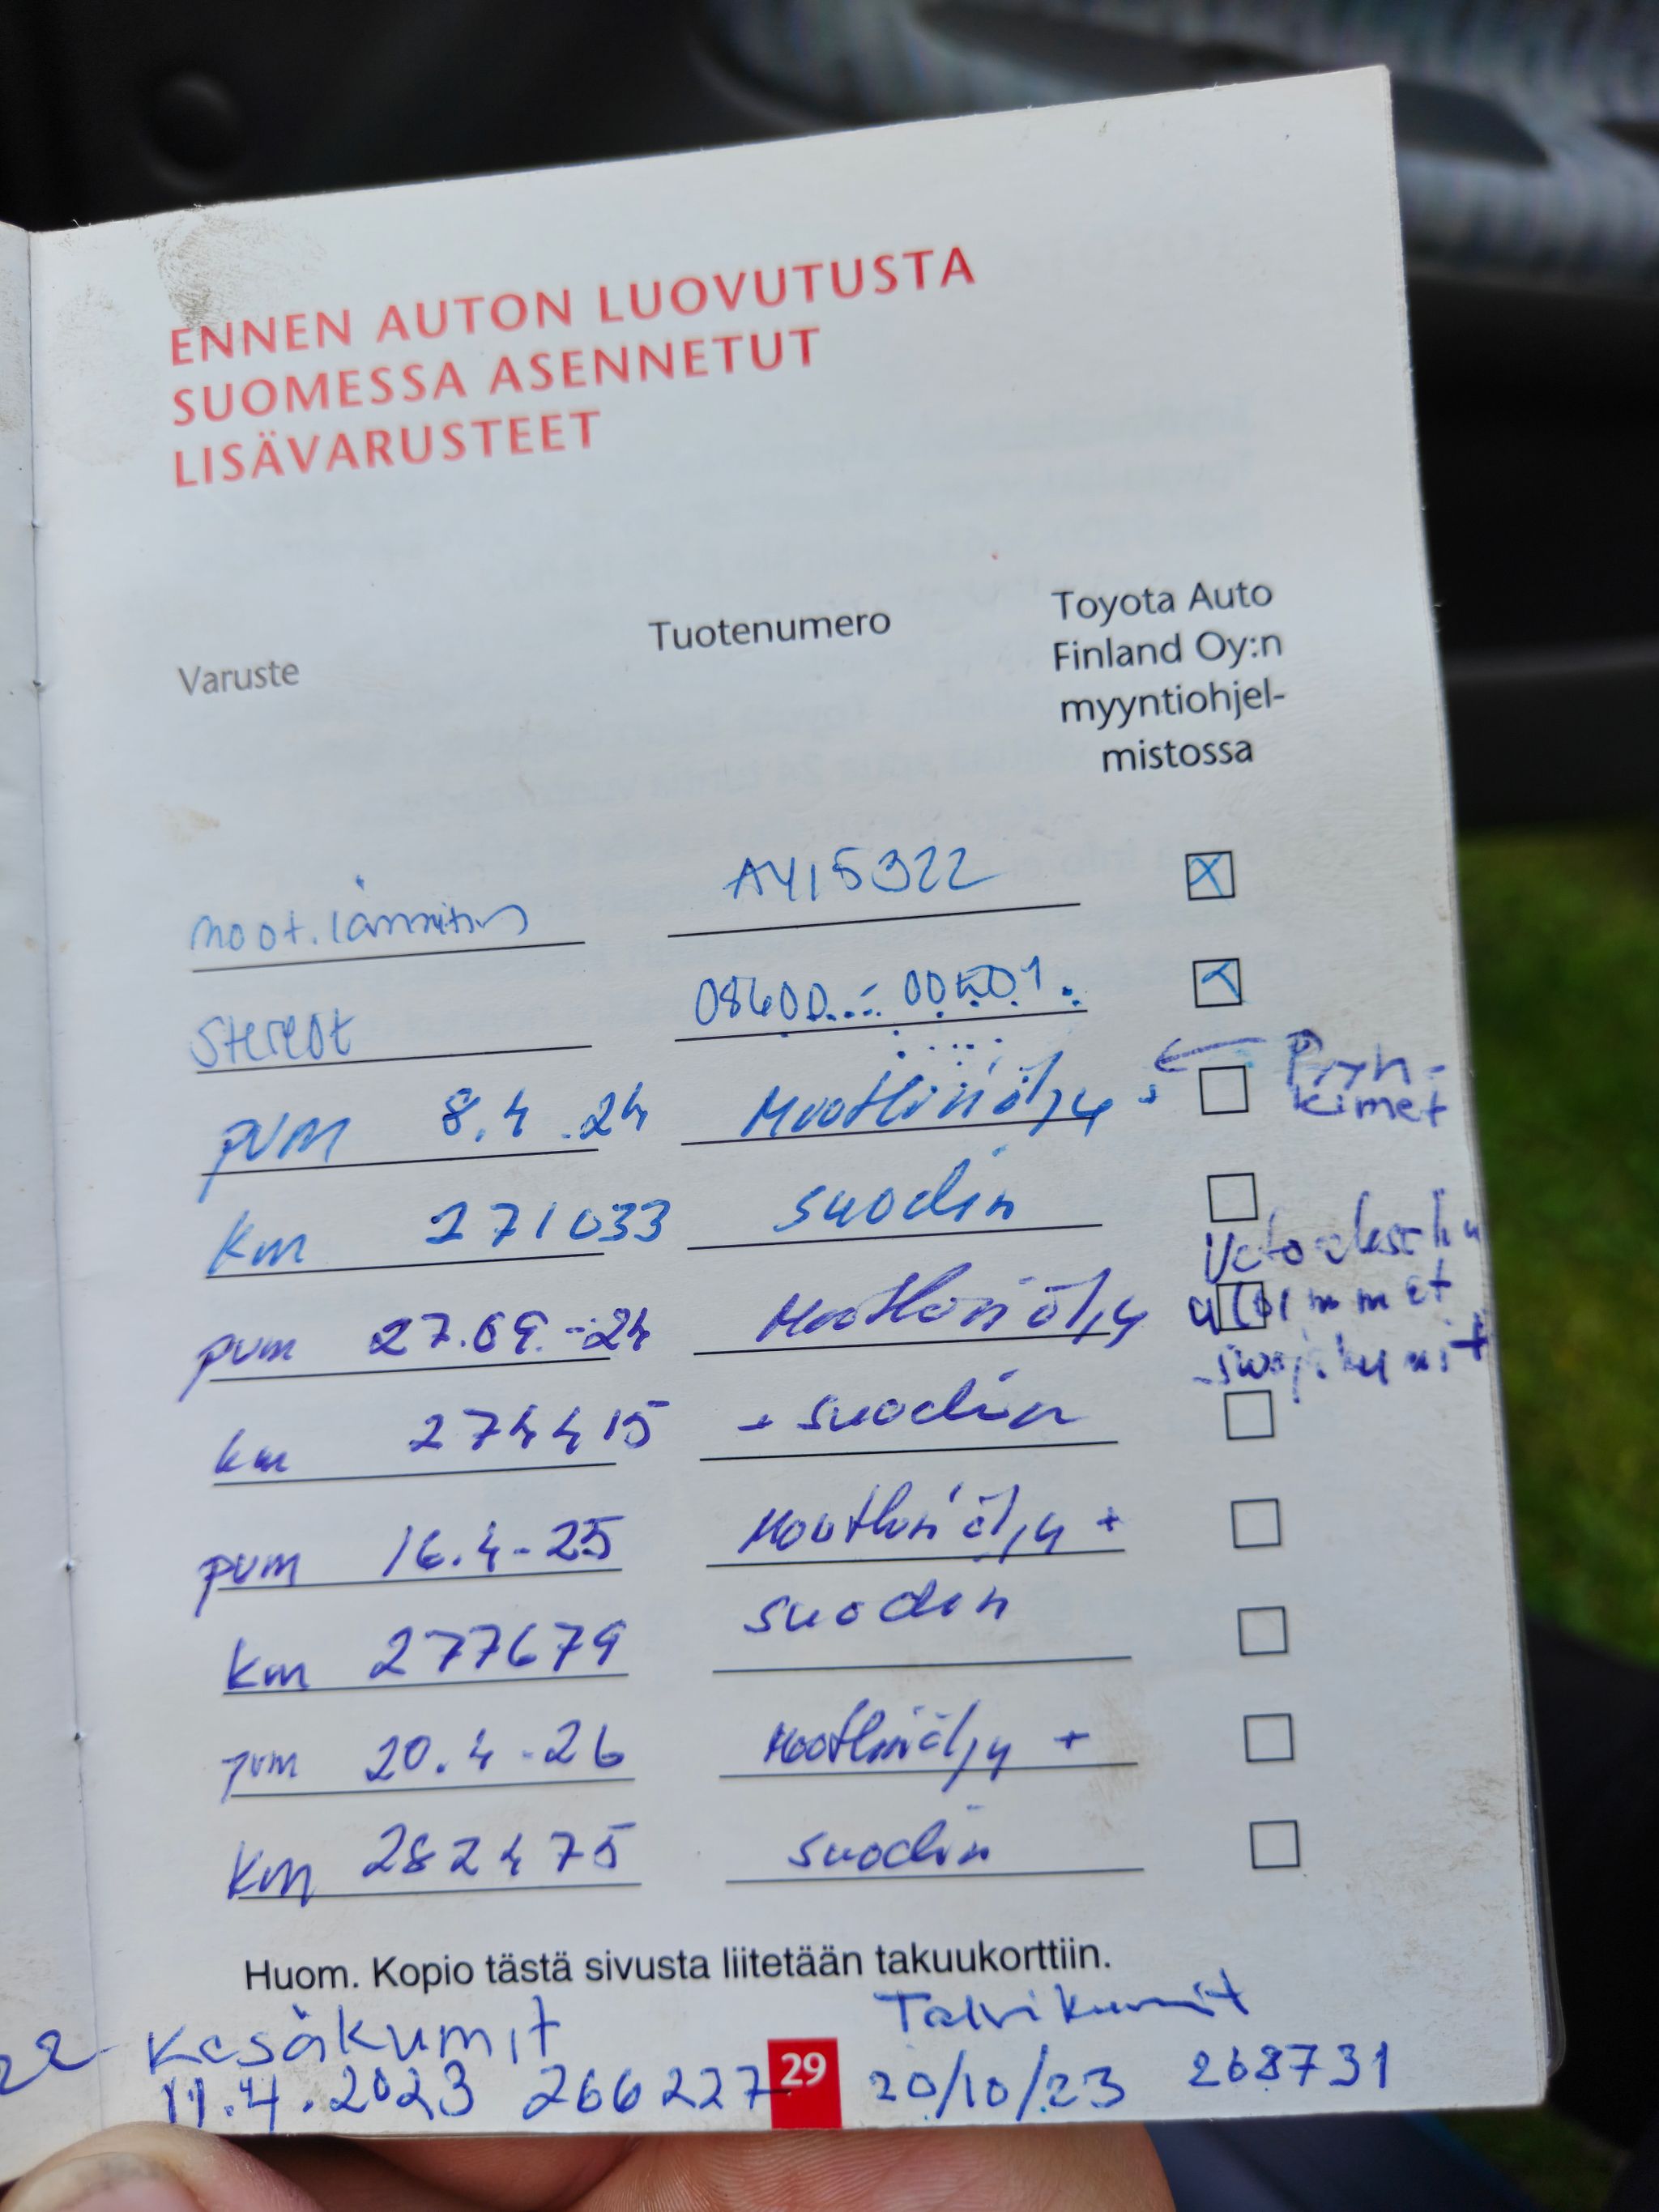 ENNEN AUTON LUOVUTUSTA
SUOMESSA ASENNETUT
LISÄVARUSTEET
Varuste
Tuotenumero
Toyota Auto
Finland Oy:n
myyntiohjel-
mistossa
moot.lämmitys AY15322 X
Stereot 08600
pvm 8.4.24 Moottoriöljy
Pyyh-
kimet
km 271033 suodin
pvm 27.09.-24 Moottoriöljy
Vetoakselin
suojakumit
km 274415 + suodin
pvm 16.4-25 Moottoriöljy +
km 277679 suodin
pvm 20.4-26 Moottoriöljy +
km 282475 suodin
Huom. Kopio tästä sivusta liitetään takuukorttiin.
Kesäkumit
11.4.2023 266227
29
Talvikumit
20/10/23 268731